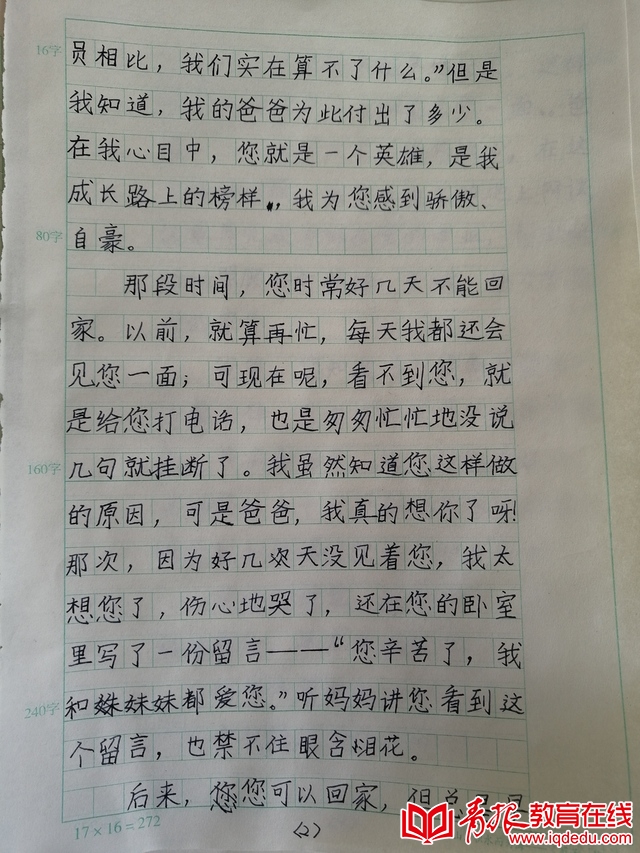 16字
员相比，我们实在算不了什么。”但是
我知道，我的爸爸为此付出了多少。
在我心目中，您就是一个英雄，是我
成长路上的榜样，，我为您感到骄傲、
80字
自豪。
那段时间，您时常好几天不能回
家。以前，就算再忙，每天我都还会
见您一面；可现在呢，看不到您，就
是给您打电话，也是匆匆忙忙地没说
160字
几句就挂断了。我虽然知道您这样做
的原因，可是爸爸，我真的想你了呀！
那次，因为好几次天没见着您，我太
想您了，伤心地哭了，还在您的卧室
里写了一份留言——“您辛苦了，我
240字
和姝妹妹都爱您。”听妈妈讲您看到这
个留言，也禁不住眼含泪花。
后来，您您可以回家，但总
17×16=272
(2)
青报教育在线
www.iqdedu.com